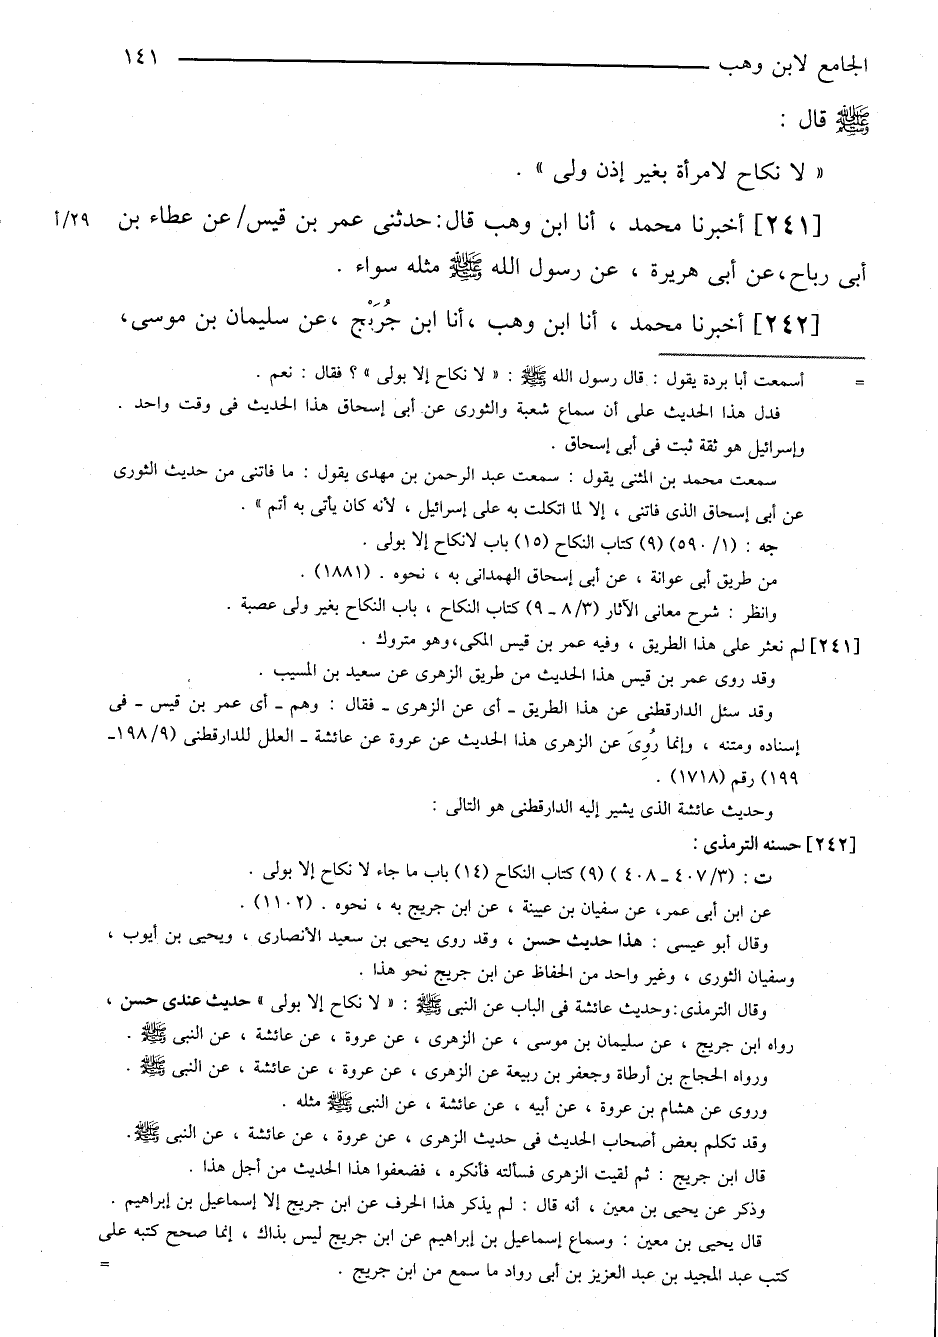 الجامع لابن وهب ١٤١
ﷺ قال :
« لا نكاح لامرأة بغير إذن ولى » .
[٢٤١] أخبرنا محمد ، أنا ابن وهب قال: حدثنى عمر بن قيس/ عن عطاء بن ٢٩/أ
أبى رباح، عن أبى هريرة ، عن رسول الله ﷺ مثله سواء .
[٢٤٢] أخبرنا محمد ، أنا ابن وهب ، أنا ابن جُرَيْج ، عن سليمان بن موسى،
= أسمعت أبا بردة يقول : قال رسول الله ﷺ : « لا نكاح إلا بولى » ؟ فقال : نعم .
فدل هذا الحديث على أن سماع شعبة والثورى عن أبى إسحاق هذا الحديث فى وقت واحد .
وإسرائيل هو ثقة ثبت فى أبى إسحاق .
سمعت محمد بن المثنى يقول : سمعت عبد الرحمن بن مهدى يقول : ما فاتنى من حديث الثورى
عن أبى إسحاق الذى فاتنى ، إلا لما اتكلت به على إسرائيل ، لأنه كان يأتى به أتم » .
جه : (١/ ٥٩٠) (٩) كتاب النكاح (١٥) باب لانكاح إلا بولى .
من طريق أبى عوانة ، عن أبى إسحاق الهمدانى به ، نحوه . (١٨٨١) .
وانظر : شرح معانى الآثار (٣/ ٨ ـ ٩) كتاب النكاح ، باب النكاح بغير ولى عصبة .
[٢٤١] لم نعثر على هذا الطريق ، وفيه عمر بن قيس المكى، وهو متروك .
وقد روى عمر بن قيس هذا الحديث من طريق الزهرى عن سعيد بن المسيب .
وقد سئل الدارقطنى عن هذا الطريق ـ أى عن الزهرى ـ فقال : وهم ـ أى عمر بن قيس ـ فى
إسناده ومتنه ، وإنما رُوِىَ عن الزهرى هذا الحديث عن عروة عن عائشة ـ العلل للدارقطنى (٩/ ١٩٨ـ
١٩٩) رقم (١٧١٨) .
وحديث عائشة الذى يشير إليه الدارقطنى هو التالى :
[٢٤٢] حسنه الترمذى :
ت : (٣/ ٤٠٧ ـ ٤٠٨ ) (٩) كتاب النكاح (١٤) باب ما جاء لا نكاح إلا بولى .
عن ابن أبى عمر، عن سفيان بن عيينة ، عن ابن جريج به ، نحوه . (١١٠٢) .
وقال أبو عيسى : هذا حديث حسن ، وقد روى يحيى بن سعيد الأنصارى ، ويحيى بن أيوب ،
وسفيان الثورى ، وغير واحد من الحفاظ عن ابن جريج نحو هذا .
وقال الترمذى: وحديث عائشة فى الباب عن النبى ﷺ : « لا نكاح إلا بولى » حديث عندى حسن ،
رواه ابن جريج ، عن سليمان بن موسى ، عن الزهرى ، عن عروة ، عن عائشة ، عن النبى ﷺ .
ورواه الحجاج بن أرطاة وجعفر بن ربيعة عن الزهرى ، عن عروة ، عن عائشة ، عن النبى ﷺ .
وروى عن هشام بن عروة ، عن أبيه ، عن عائشة ، عن النبى ﷺ مثله .
وقد تكلم بعض أصحاب الحديث فى حديث الزهرى ، عن عروة ، عن عائشة ، عن النبى ﷺ.
قال ابن جريج : ثم لقيت الزهرى فسألته فأنكره ، فضعفوا هذا الحديث من أجل هذا .
وذكر عن يحيى بن معين ، أنه قال : لم يذكر هذا الحرف عن ابن جريج إلا إسماعيل بن إبراهيم .
قال يحيى بن معين : وسماع إسماعيل بن إبراهيم عن ابن جريج ليس بذاك ، إنما صحح كتبه على
كتب عبد المجيد بن عبد العزيز بن أبى رواد ما سمع من ابن جريج . =